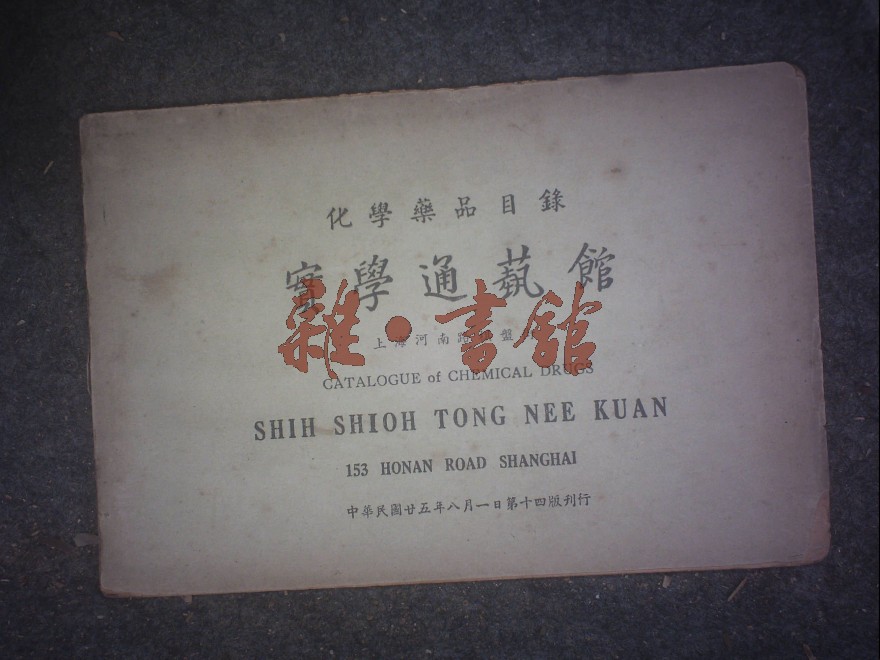 化學藥品目錄
實學通藝館
雜·書館
上海河南路 盤
CATALOGUE of CHEMICAL DRUGS
SHIH SHIOH TONG NEE KUAN
153 HONAN ROAD SHANGHAI
中華民國廿五年八月一日第十四版刊行